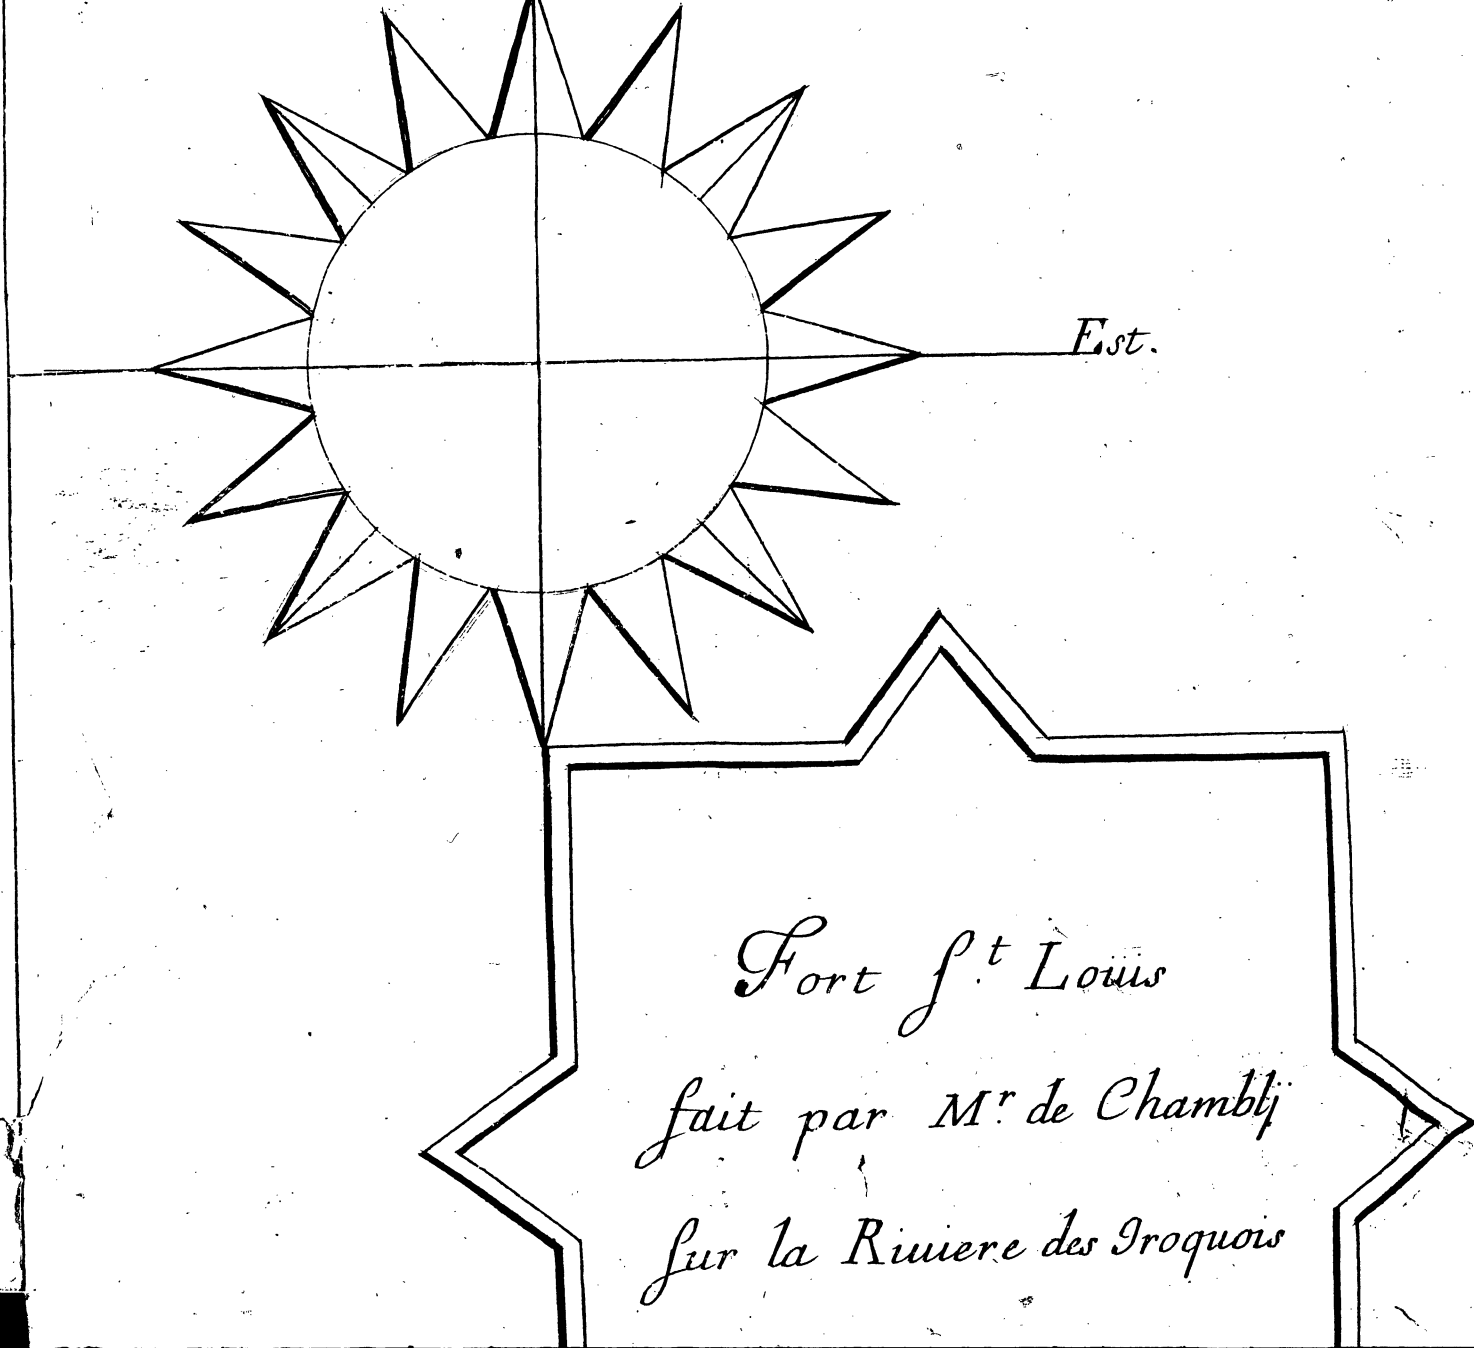 Est.
Fort S.t Loüis
fait par Mr. de Chamblÿ
sur la Riuiere des Iroquois